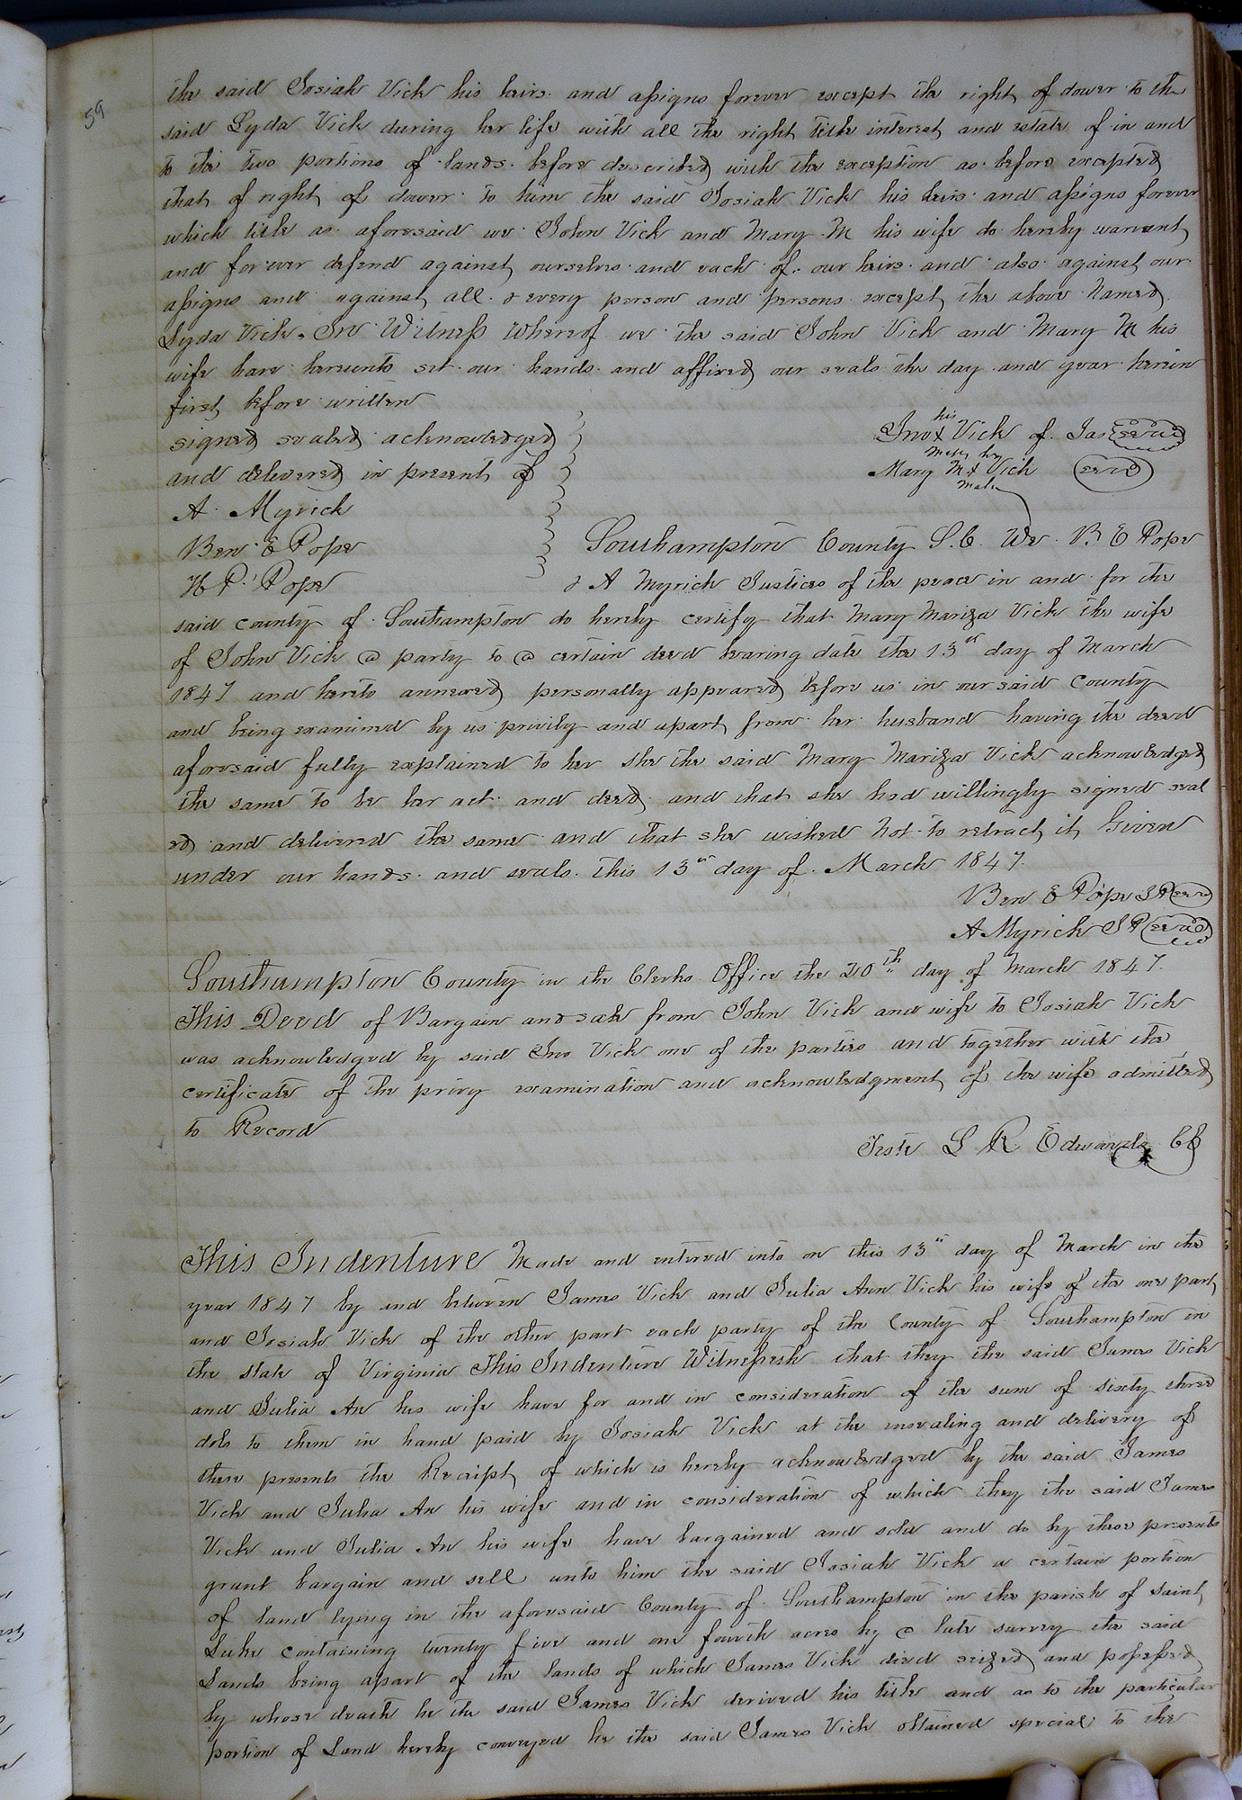 59
the said Josiah Vick his heirs and assigns forever except the right of dower to the
said Lyda Vick during her life with all the right title interest and estate of in and
to the two portions of lands before described with the exception as before excepted
that of right of dower to him the said Josiah Vick his heirs and assigns forever
which title as aforesaid we John Vick and Mary M his wife do hereby warrent
and forever defend against ourselves and each of our heirs and also against our
assigns and against all & every person and persons except the above Named
Lyda Vick. In Witness Whereof we the said John Vick and Mary M his
wife have hereunto set our hands and affixed our seals the day and year herein
first before written
signed sealed acknowledged
and delivered in present of
A. Myrick
Ben E Pope
H P. Pope
his
Jno X Vick of Jas seal
mark her
Mary M X Vick seal
mark
Southampton County S.C. We B. E Pope
& A Myrick Justices of the peace in and for the
said county of Southampton do hereby certify that Mary Mariza Vick the wife
of John Vick a party to a certain deed bearing date the 13th day of March
1847 and hereto annexed personally appeared before us in our said County
and being examined by us privily and apart from her husband having the deed
aforesaid fully explained to her she the said Mary Mariza Vick acknowledged
the same to be her act and deed and that she had willingly signed seal
ed and delivered the same and that she wished not to retract it Given
under our hands and seals this 13th day of March 1847.
Ben E Pope JP seal
A Myrick JP seal
Southampton County in the Clerks Office the 20th day of March 1847.
This Deed of Bargain and sale from John Vick and wife to Josiah Vick
was acknowledged by said Jno Vick one of the parties and together with the
certificate of the privy examination and acknowledgment of the wife admitted
to Record
Teste L R Edwards CC
This Indenture Made and entered into on this 13th day of March in the
year 1847 by and between James Vick and Julia Ann Vick his wife of the one part
and Josiah Vick of the other part each party of the County of Southampton in
the state of Virginia This Indenture Witnesseth that they the said James Vick
and Julia An his wife have for and in consideration of the sum of sixty three
dols to them in hand paid by Josiah Vick at the insealing and delivery of
these presents the Receipt of which is hereby acknowledged by the said James
Vick and Julia An his wife and in consideration of which they the said James
Vick and Julia An his wife have bargained and sold and do by these presents
grant bargain and sell unto him the said Josiah Vick a certain portion
of land lying in the aforesaid County of Southampton in the parish of Saint
Luke containing twenty five and one fourth acres by a late survey the said
Lands being apart of the lands of which James Vick died seized and possessed
by whose death he the said James Vick derived his title and as to the particular
portion of Land hereby conveyed he the said James Vick obtained special to the